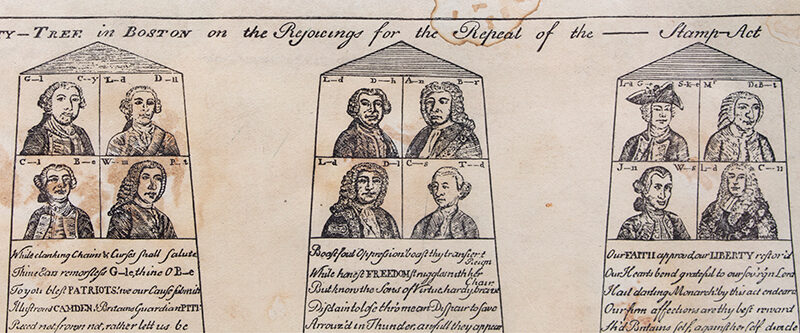 TY–TREE in BOSTON on the Rejoicings for the Repeal of the —— Stamp-Act
G–l C–y L–d D–ll
C–l B–e W–m P–t
While clanking Chains & Curses shall salute
Thine Ears remorseless G–le, thine O B–e
To you blest PATRIOTS! we our Cause submit
Illustrious CAMDEN, Britains Guardian PITT
Recede not, frown not, rather let us be
L–d D–h A–n B–r
L–d D–l C–s T–d
Boast foul Oppression! boast thy transient Reign
While honest FREEDOM struggles with her Chain
But know the Sons of Virtue hardy brave
Disdain to lose thro' mean Dispair to save
Arrow'd in Thunder, awfull they appear
Ld G–e S–k–e Mr DeB–t
J–n W–s L–d C–n
Our FAITH approv'd, our LIBERTY restor'd
Our Hearts bend grateful to our sov'rgn Lord
Hail darling Monarch! by this act endear'd
Our firm affections are thy best reward
Sh'd Britains self, against her self divide